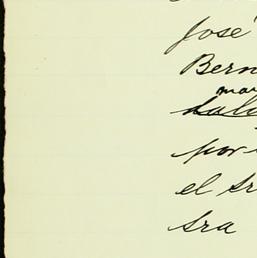 José
Bern
mar
por
el sr
sra